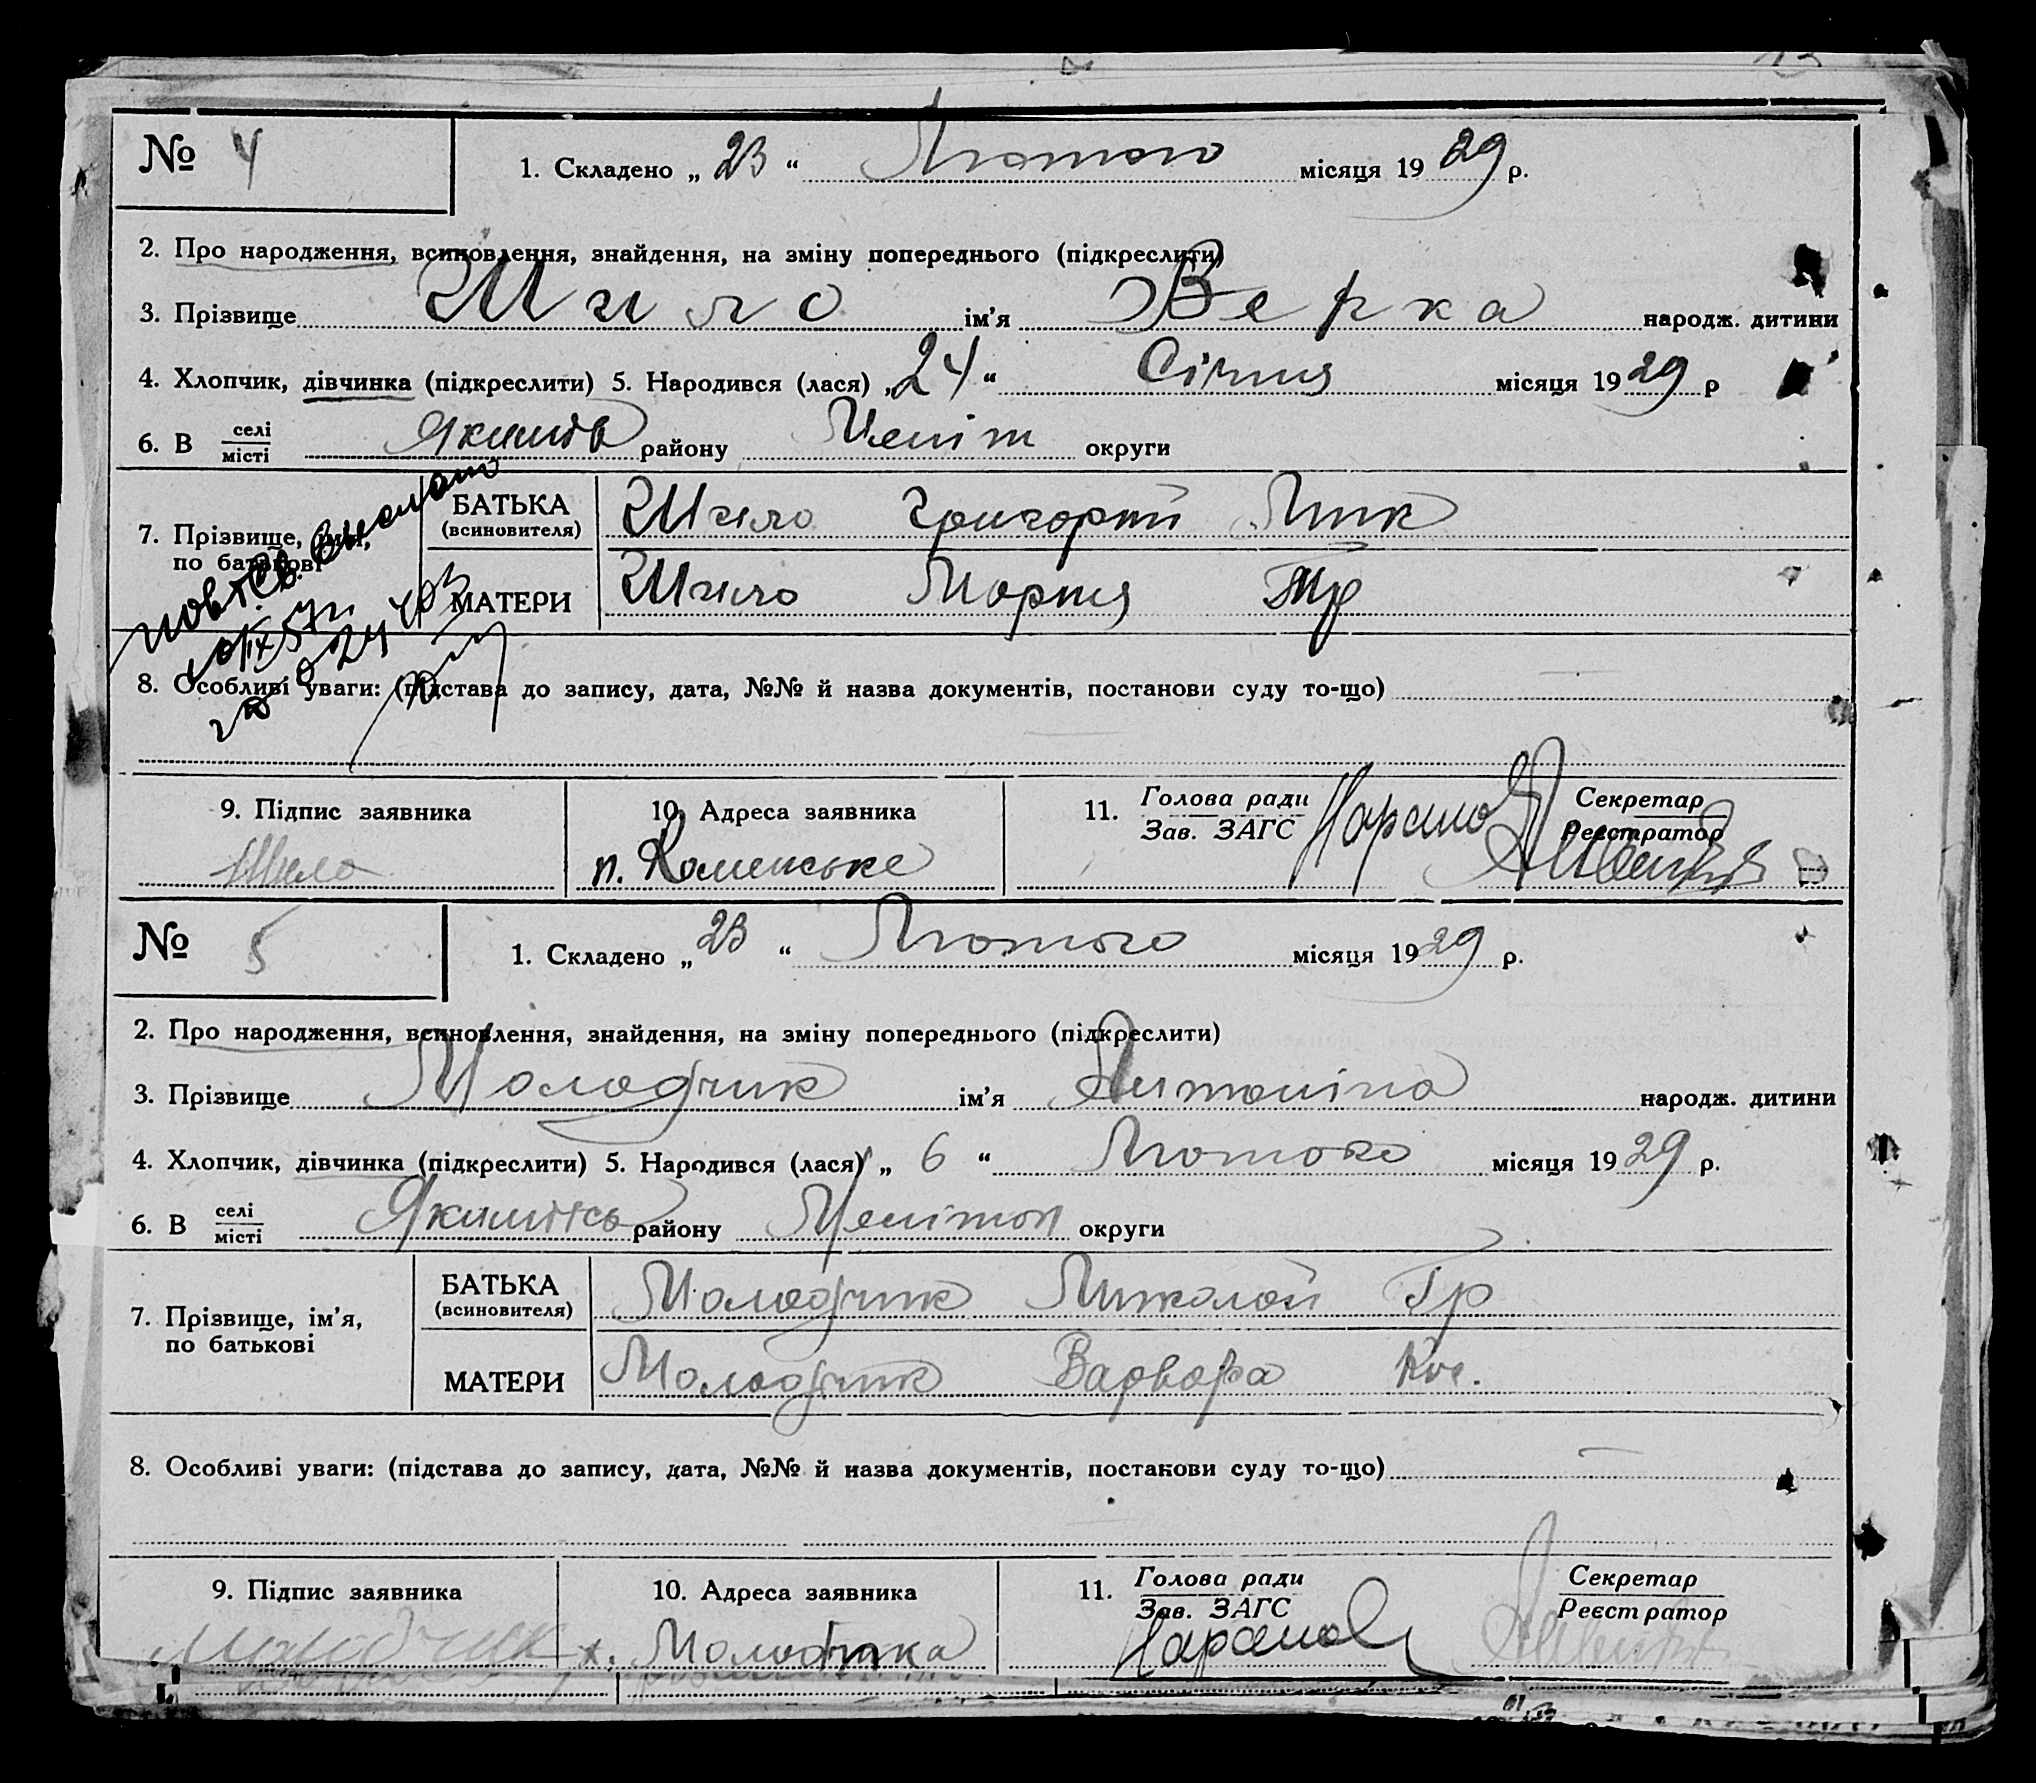 № 4
1. Складено „ 23 “ Лютого місяця 1929 р.
2. Про народження, всиновлення, знайдення, на зміну попереднього (підкреслити)
3. Прізвище Шило ім'я Верка народж. дитини
4. Хлопчик, дівчинка (підкреслити) 5. Народився (лася) „24“ Січня місяця 1929 р
6. В селі / місті Якимів району Меліт округи
7. Прізвище, ім'я, по батькові
БАТЬКА (всиновителя) Шило Григорій Мик
МАТЕРИ Шило Мария Тр
повт. св. выслано
8. Особливі уваги: (підстава до запису, дата, №№ й назва документів, постанови суду то-що)
9. Підпис заявника 10. Адреса заявника 11. Голова ради / Зав. ЗАГС Секретар / Реєстратор
Шило п. Каменське
№ 5
1. Складено „ 23 “ Лютого місяця 1929 р.
2. Про народження, всиновлення, знайдення, на зміну попереднього (підкреслити)
3. Прізвище Молодчик ім'я Антоніна народж. дитини
4. Хлопчик, дівчинка (підкреслити) 5. Народився (лася) „ 6 “ Лютого місяця 1929 р.
6. В селі / місті району Мелітоп округи
7. Прізвище, ім'я, по батькові
БАТЬКА (всиновителя) Молодчик Миколай Гр
МАТЕРИ Молодчик Варвара
8. Особливі уваги: (підстава до запису, дата, №№ й назва документів, постанови суду то-що)
9. Підпис заявника 10. Адреса заявника 11. Голова ради / Зав. ЗАГС Секретар / Реєстратор
Молодчик х.